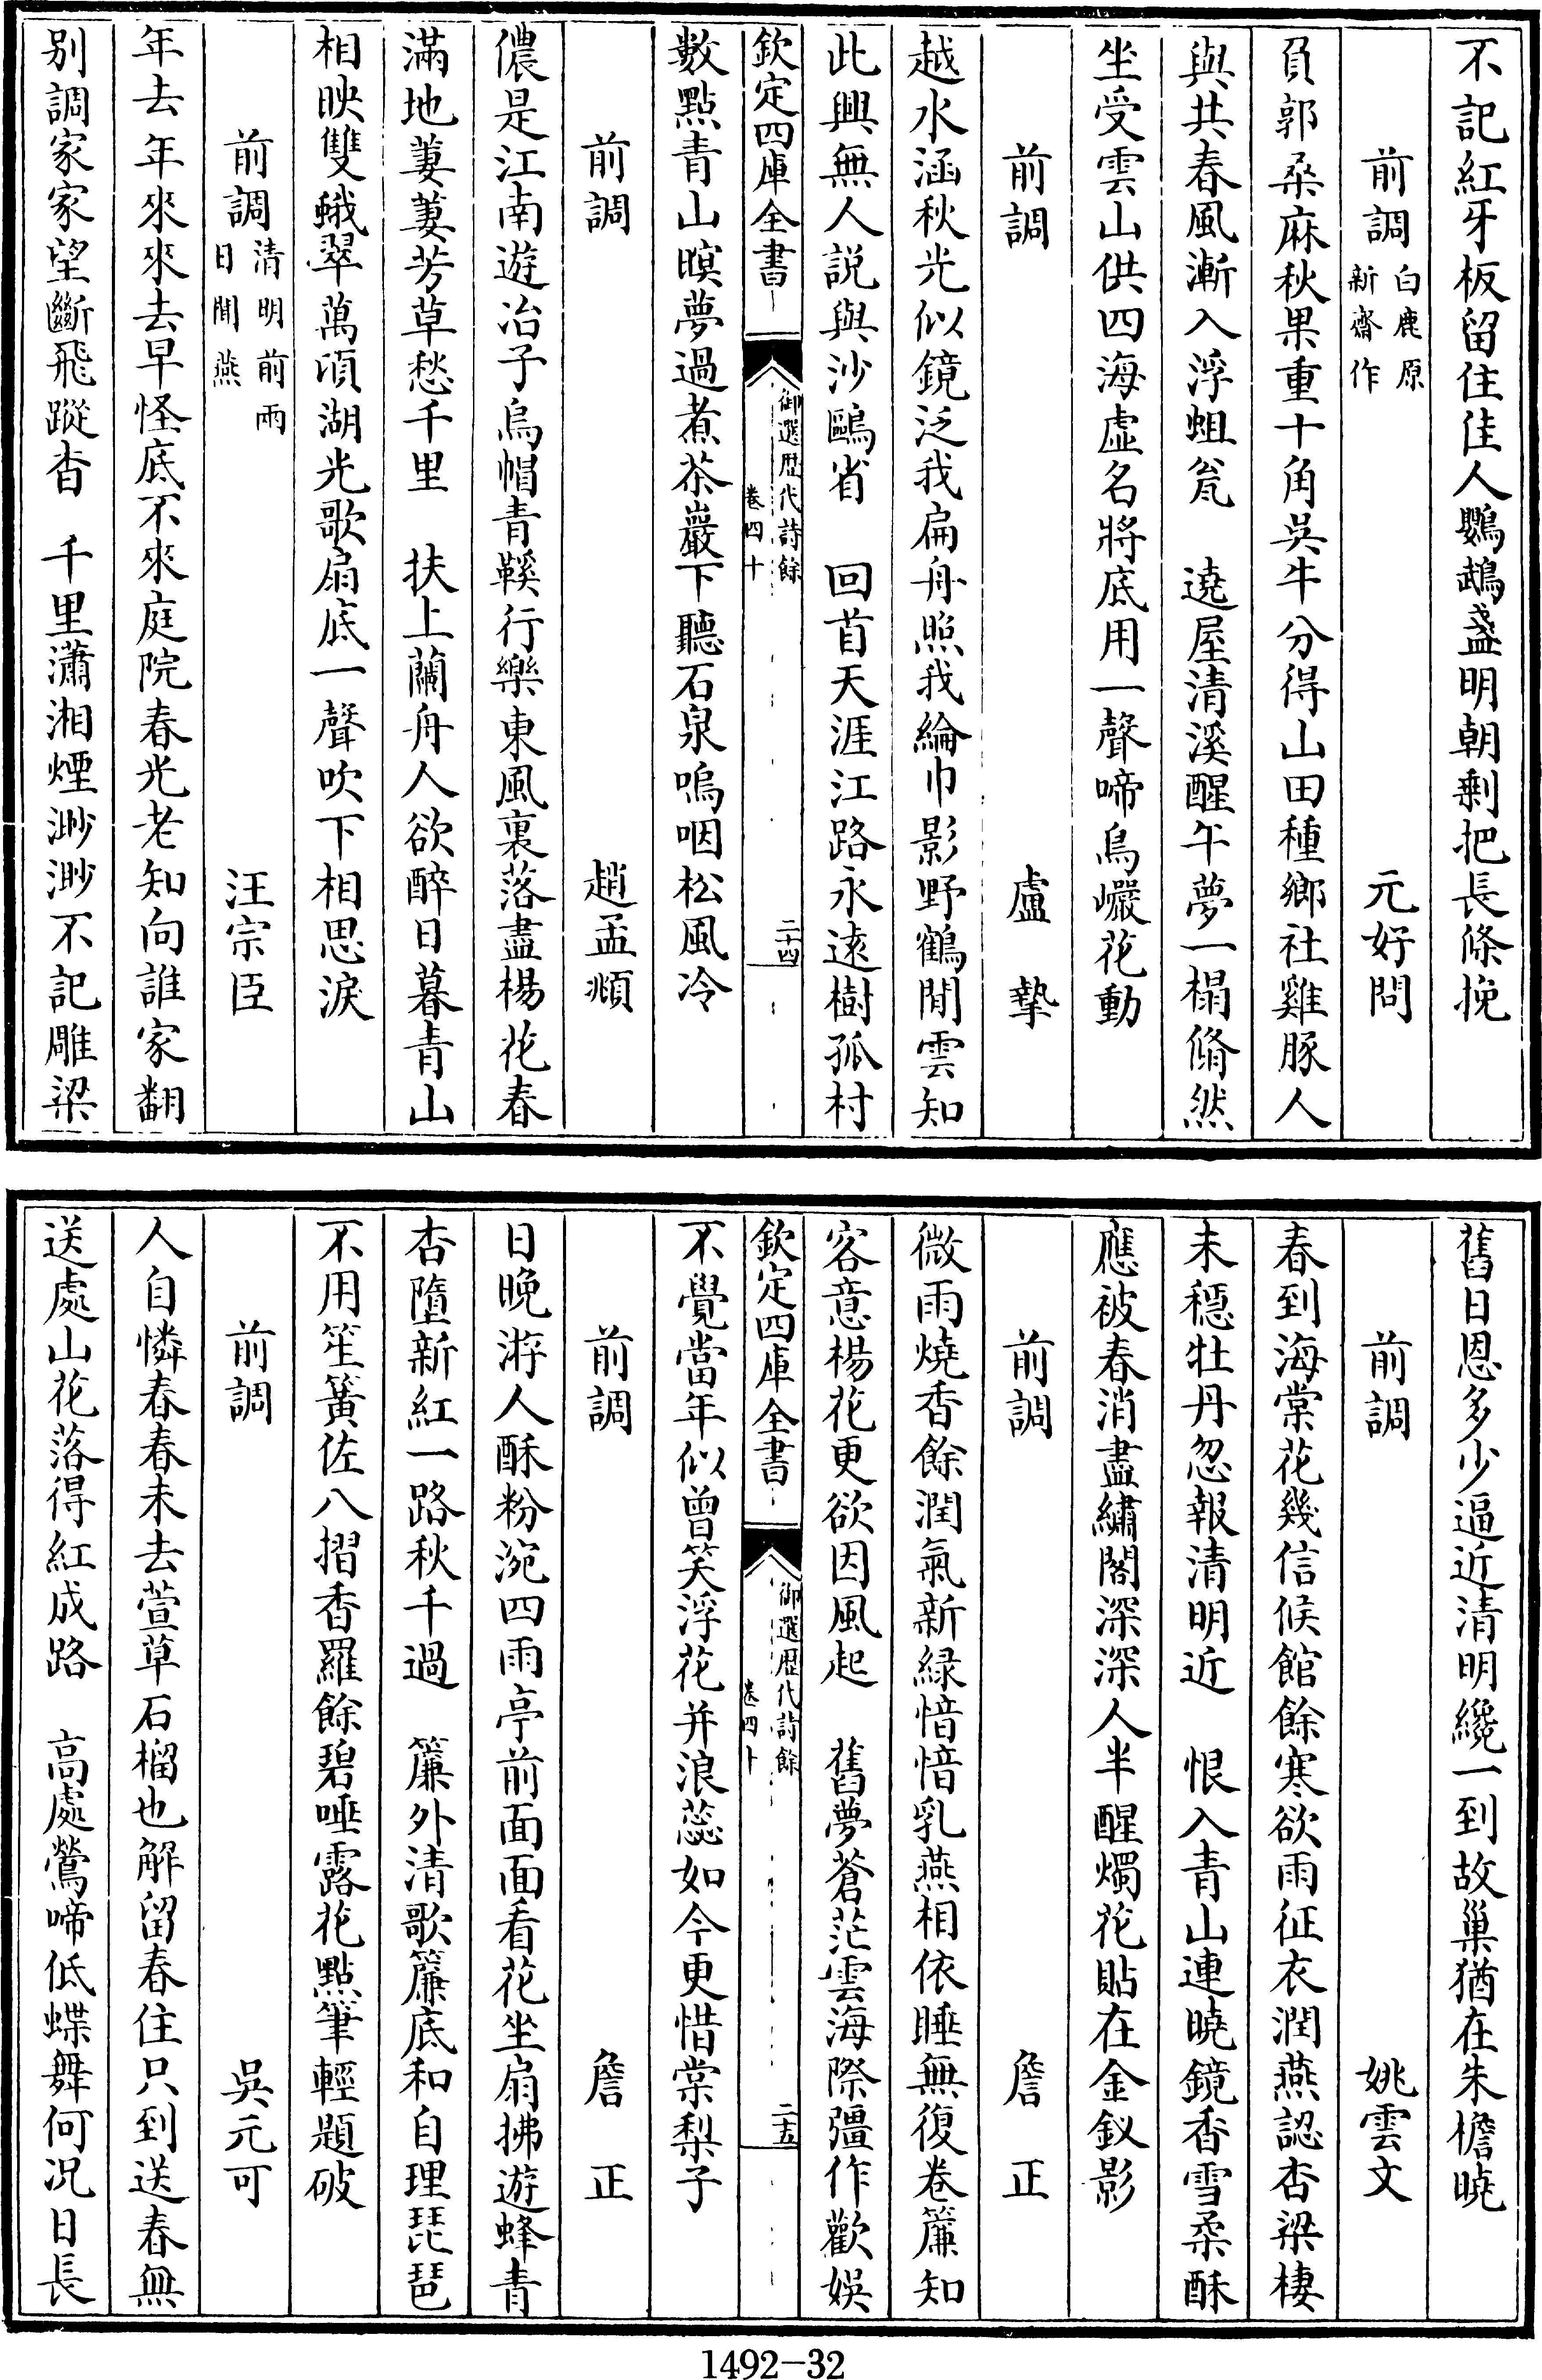 不記紅牙板留住佳人鸚鵡盞明朝剩把長條挽
前調白鹿原新齋作　元好問
負郭桑麻秋果重十角吳牛分得山田種鄉社雞豚人
與共春風漸入浮蛆瓮　遶屋清溪醒午夢一榻翛然
坐受雲山供四海虛名將底用一聲啼鳥巖花動
前調　盧摯
越水涵秋光似鏡泛我扁舟照我綸巾影野鶴閒雲知
此興無人說與沙鷗省　回首天涯江路永遠樹孤村
欽定四庫全書　御選歷代詩餘　卷四十　二十四
數點青山暝夢過煮茶巖下聽石泉嗚咽松風冷
前調　趙孟頫
儂是江南遊冶子烏帽青鞵行樂東風裏落盡楊花春
滿地萋萋芳草愁千里　扶上蘭舟人欲醉日暮青山
相映雙蛾翠萬頃湖光歌扇底一聲吹下相思淚
前調清明前雨日閒燕　汪宗臣
年去年來來去早怪底不來庭院春光老知向誰家翻
別調家家望斷飛蹤杳　千里瀟湘煙渺渺不記雕梁
舊日恩多少逼近清明纔一到故巢猶在朱檐曉
前調　姚雲文
春到海棠花幾信候館餘寒欲雨征衣潤燕認杏梁棲
未穩牡丹忽報清明近　恨入青山連曉鏡香雪柔酥
應被春消盡繡閣深深人半醒燭花貼在金釵影
前調　詹正
微雨燒香餘潤氣新綠愔愔乳燕相依睡無復卷簾知
客意楊花更欲因風起　舊夢蒼茫雲海際彊作歡娛
欽定四庫全書　御選歷代詩餘　卷四十　二十五
不覺當年似曾笑浮花并浪蕊如今更惜棠梨子
前調　詹正
日晚游人酥粉涴四雨亭前面面看花坐扇拂遊蜂青
杏墮新紅一路秋千過　簾外清歌簾底和自理琵琶
不用笙簧佐八摺香羅餘碧唾露花點筆輕題破
前調　吳元可
人自憐春春未去萱草石榴也解留春住只到送春無
送處山花落得紅成路　高處鶯啼低蝶舞何況日長
1492-32